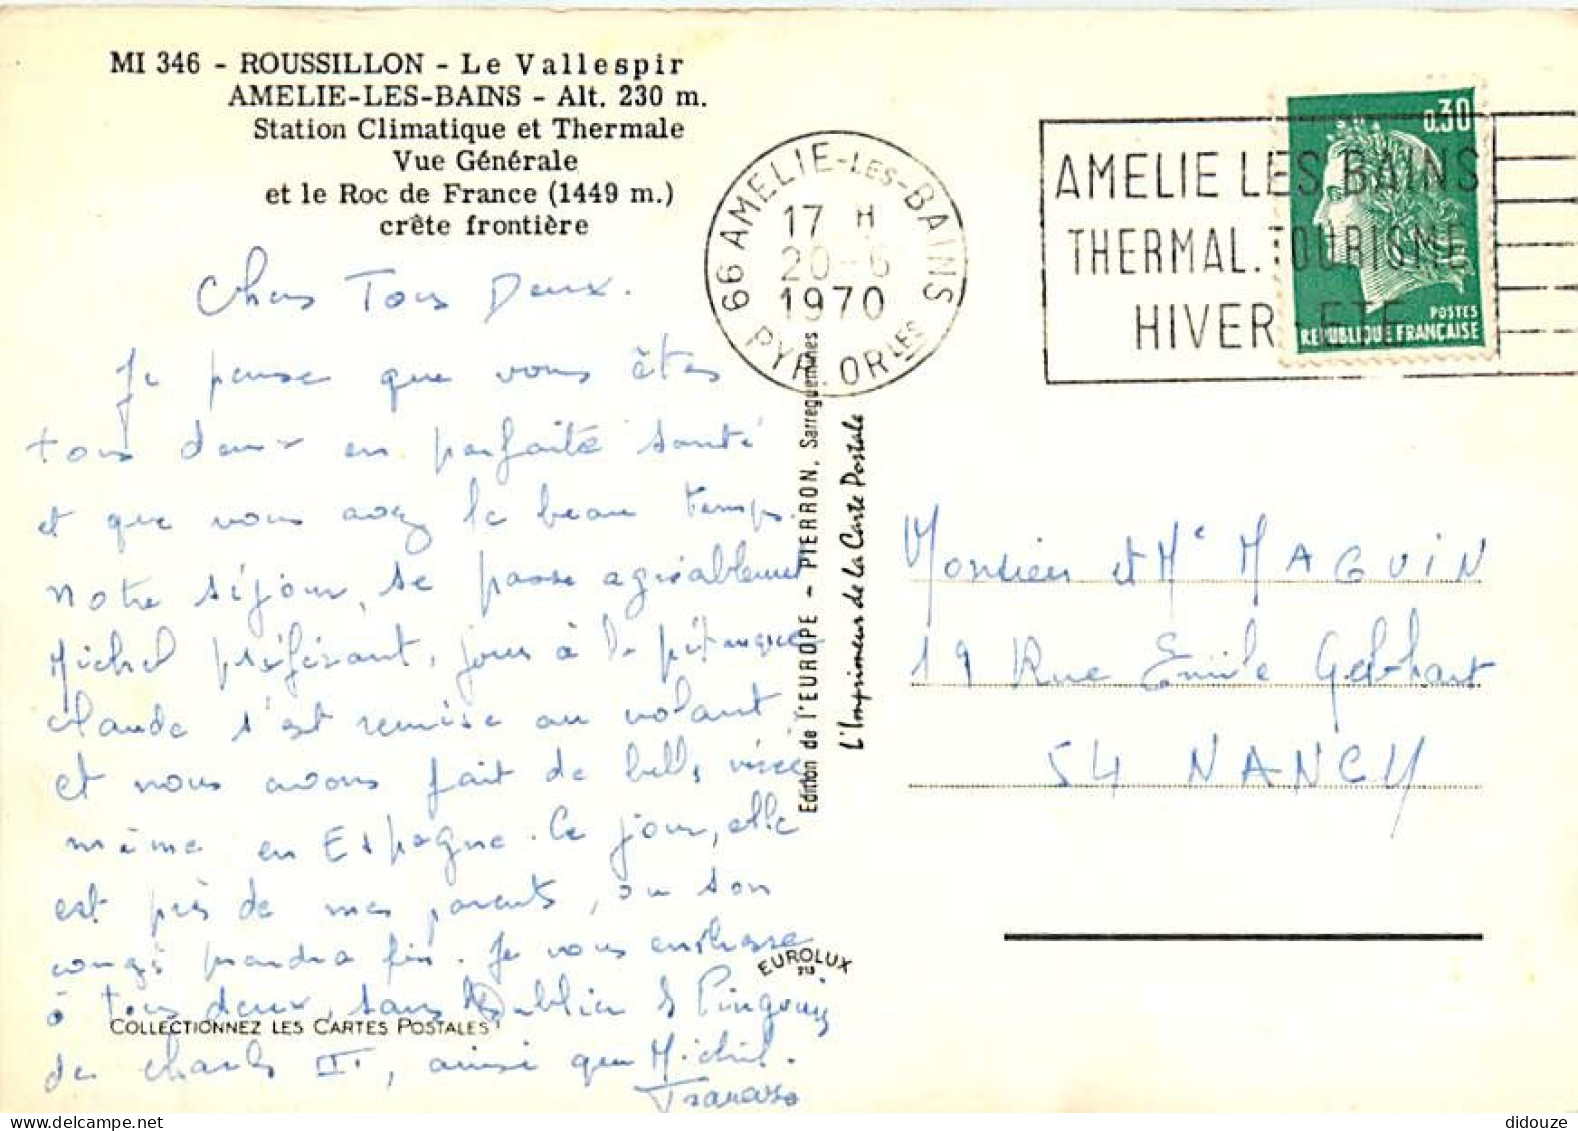 MI 346 - ROUSSILLON - Le Vallespir
AMELIE-LES-BAINS - Alt. 230 m.
Station Climatique et Thermale
Vue Générale
et le Roc de France (1449 m.)
crête frontière
66 AMELIE-LES-BAINS
17 H
20-6
1970
PYR. ORLES
AMELIE LES BAINS
THERMAL. TOURISME
HIVER-ETE
0,30
POSTES
REPUBLIQUE FRANCAISE
Chers Tous Deux.
Je pense que vous êtes
tous deux en parfaite santé
et que vous avez le beau temps.
Notre séjour, se passe agréablement
Michel préférant, jouer à la pétanque
Claude s'est remise au volant
et nous avons fait de belles
même en Espagne. Ce jour, elle
est près de mes parents, ou son
congé prendra fin. Je vous embrasse
à tous deux, sans oublier
de Charles III, ainsi que Michel.
Edition de l'EUROPE - PIERRON, Sarreguemines
L'Imprimeur de la Carte Postale
EUROLUX
213
COLLECTIONNEZ LES CARTES POSTALES !
Monsieur et Me MAGUIN
19 Rue Emile Gebhart
54 NANCY
didouze